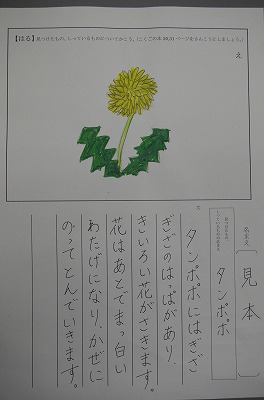 【はる】見つけたもの、しっているものについてかこう。(こくごの本30,31ページをさんこうにしましょう。)
え
名まえ
見本
見つけたもの、
しっているもののなまえ
タンポポ
文
タンポポにはぎざ
ぎざのはっぱがあり、
きいろい花がさきます。
花はあとでまっ白い
わたげになり、かぜに
のってとんでいきます。